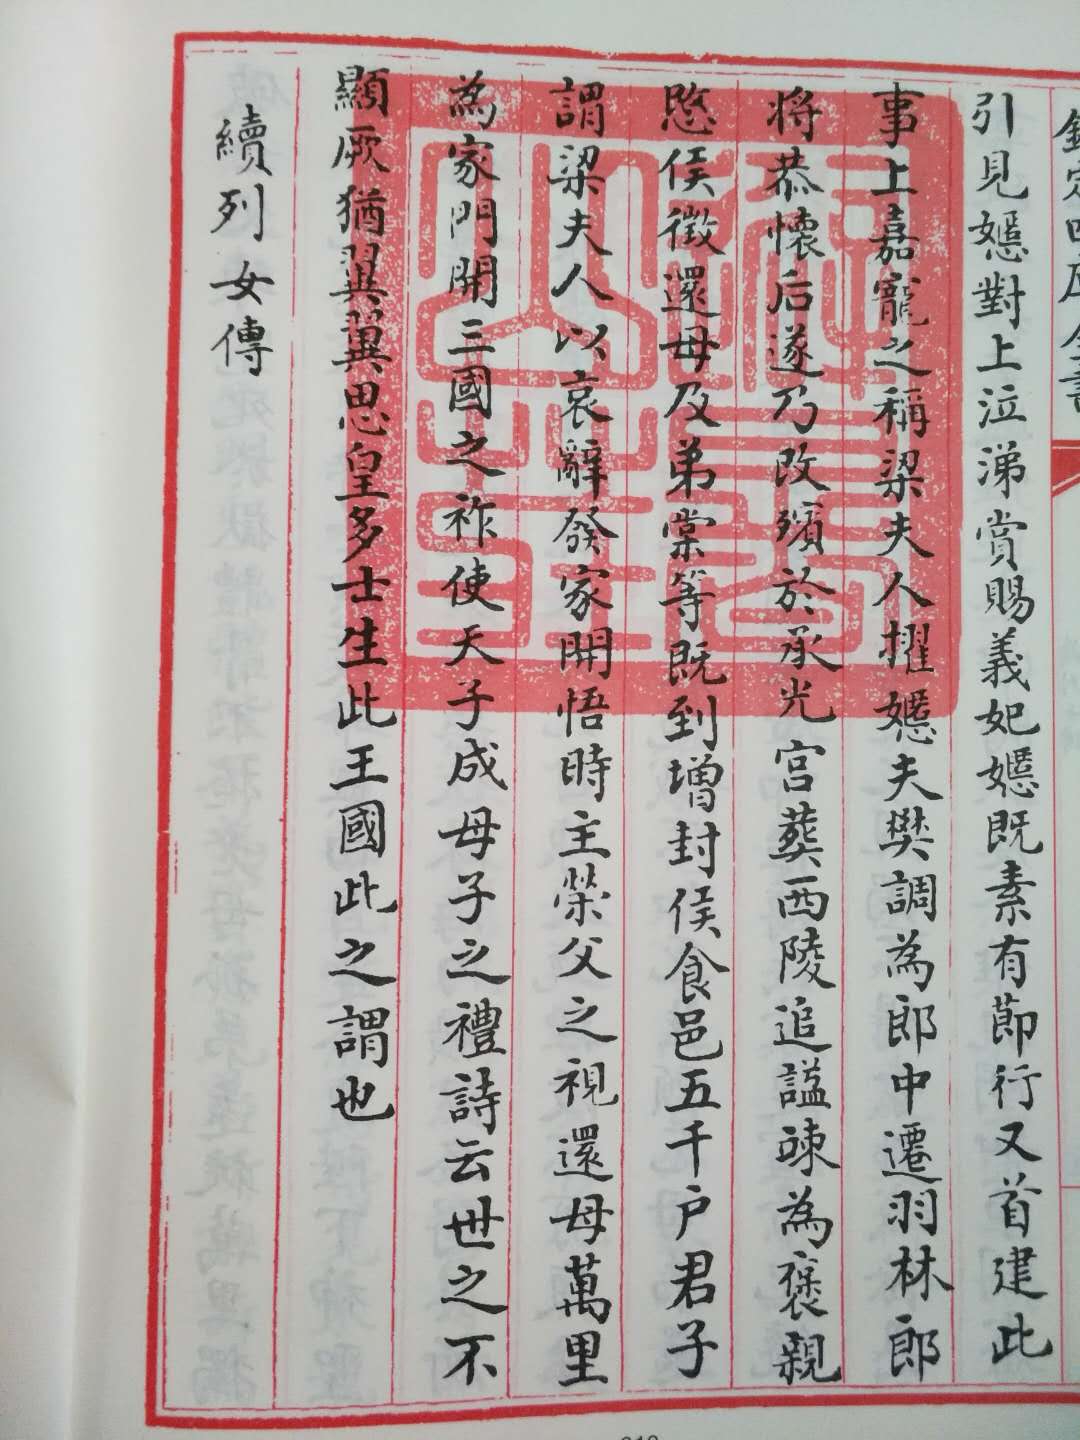 欽定四庫全書
引見嫕對上泣涕賞賜義妃嫕既素有節行又首建此
事上嘉寵之稱梁夫人擢嫕夫樊調為郎中遷羽林郎
將恭懷后遂乃改殯於承光宫葬西陵追謚竦為褒親
愍侯徵還母及弟棠等既到增封侯食邑五千户君子
謂梁夫人以哀辭發家開悟時主榮父之視還母萬里
為家門開三國之祚使天子成母子之禮詩云世之不
顯厥猶翼翼思皇多士生此王國此之謂也
續列女傳